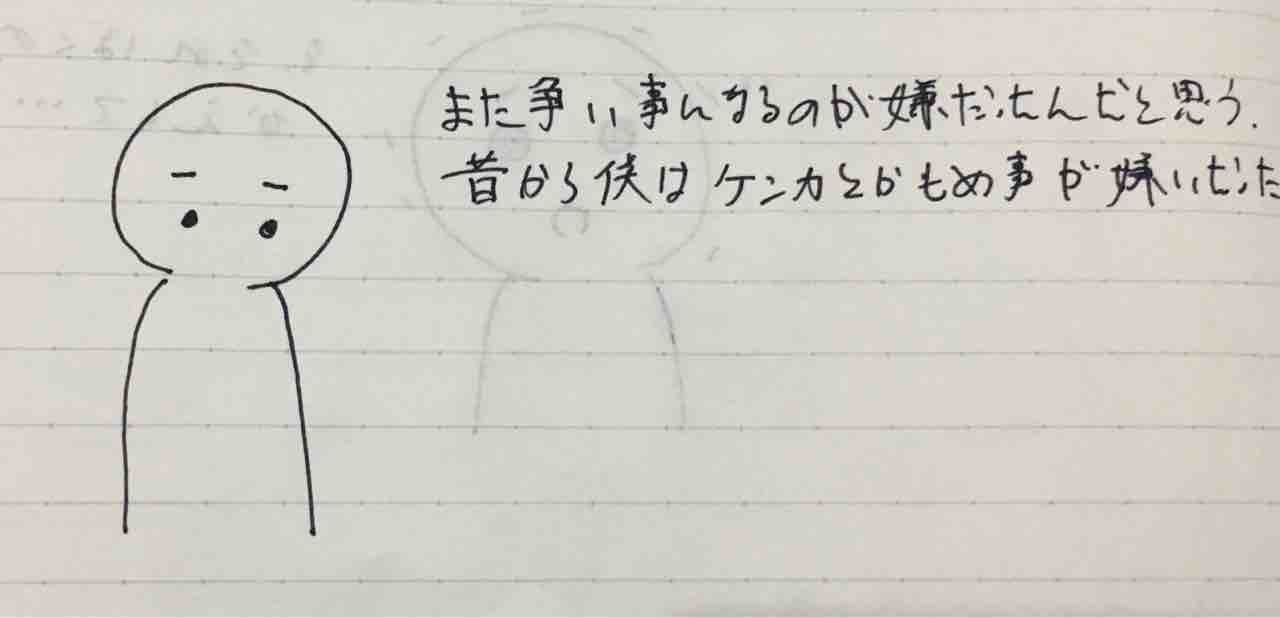 また争い事になるのが嫌だったんだと思う.
昔から僕はケンカとかもめ事が嫌いだった